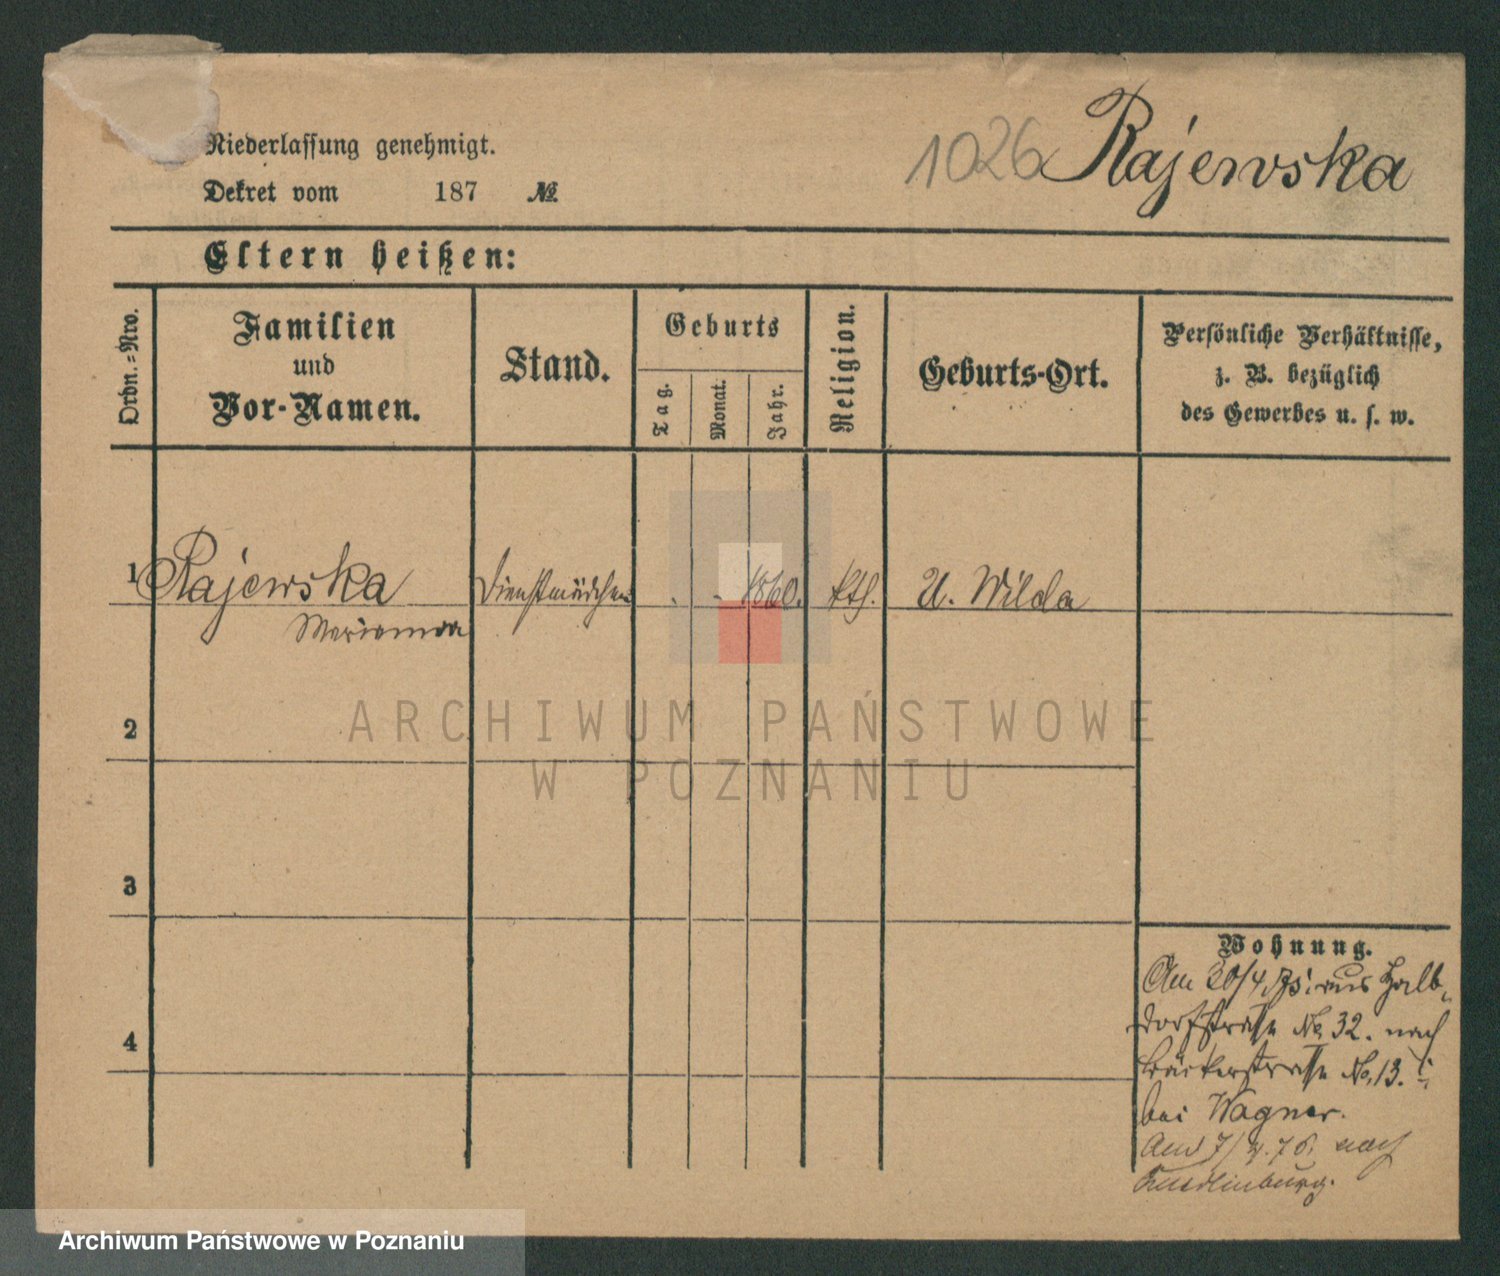 Niederlassung genehmigt.
Dekret vom 187 №
1026 Rajewska
Eltern heißen:
Ordn.-Nro.
Familien
und
Vor-Namen.
Stand.
Geburts
Tag.
Monat.
Jahr.
Religion.
Geburts-Ort.
Persönliche Verhältnisse,
z. B. bezüglich
des Gewerbes u. s. w.
1 Rajewska Dienstmädchen . . 1860. kth. U. Wilda
Marianna
ARCHIWUM PAŃSTWOWE
W POZNANIU
2
3
4
Wohnung.
Am 20/4 75. aus Halb-
dorfstraße No 32. nach
Bäckerstraße No. 13.
bei Wagner.
Am 7/ 76. nach
Archiwum Państwowe w Poznaniu